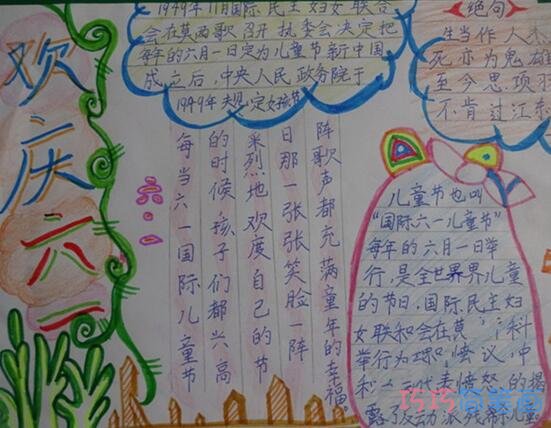 欢庆六一
1949年11月国际民主妇女联合
会在莫两歌召开执委会决定把
每年的六月一日定为儿童节新中国
成立之后,中央人民政务院于
1949年规定女孩节
绝句
生当作人杰
死亦为鬼雄
至今思项羽
不肯过江东
六·一
每当六一国际儿童节
的时候孩子们都兴高
采烈地欢度自己的节
日那一张张笑脸一阵
阵歌声都充满童年的幸福。
儿童节也叫
“国际六一儿童节”
每年的六月一日举
行,是全世界界儿童
的节日,国际民主妇
女联和会在莫 科
举行为理和 议,中
和 代表愤怒的揭
露了 动派残 儿童